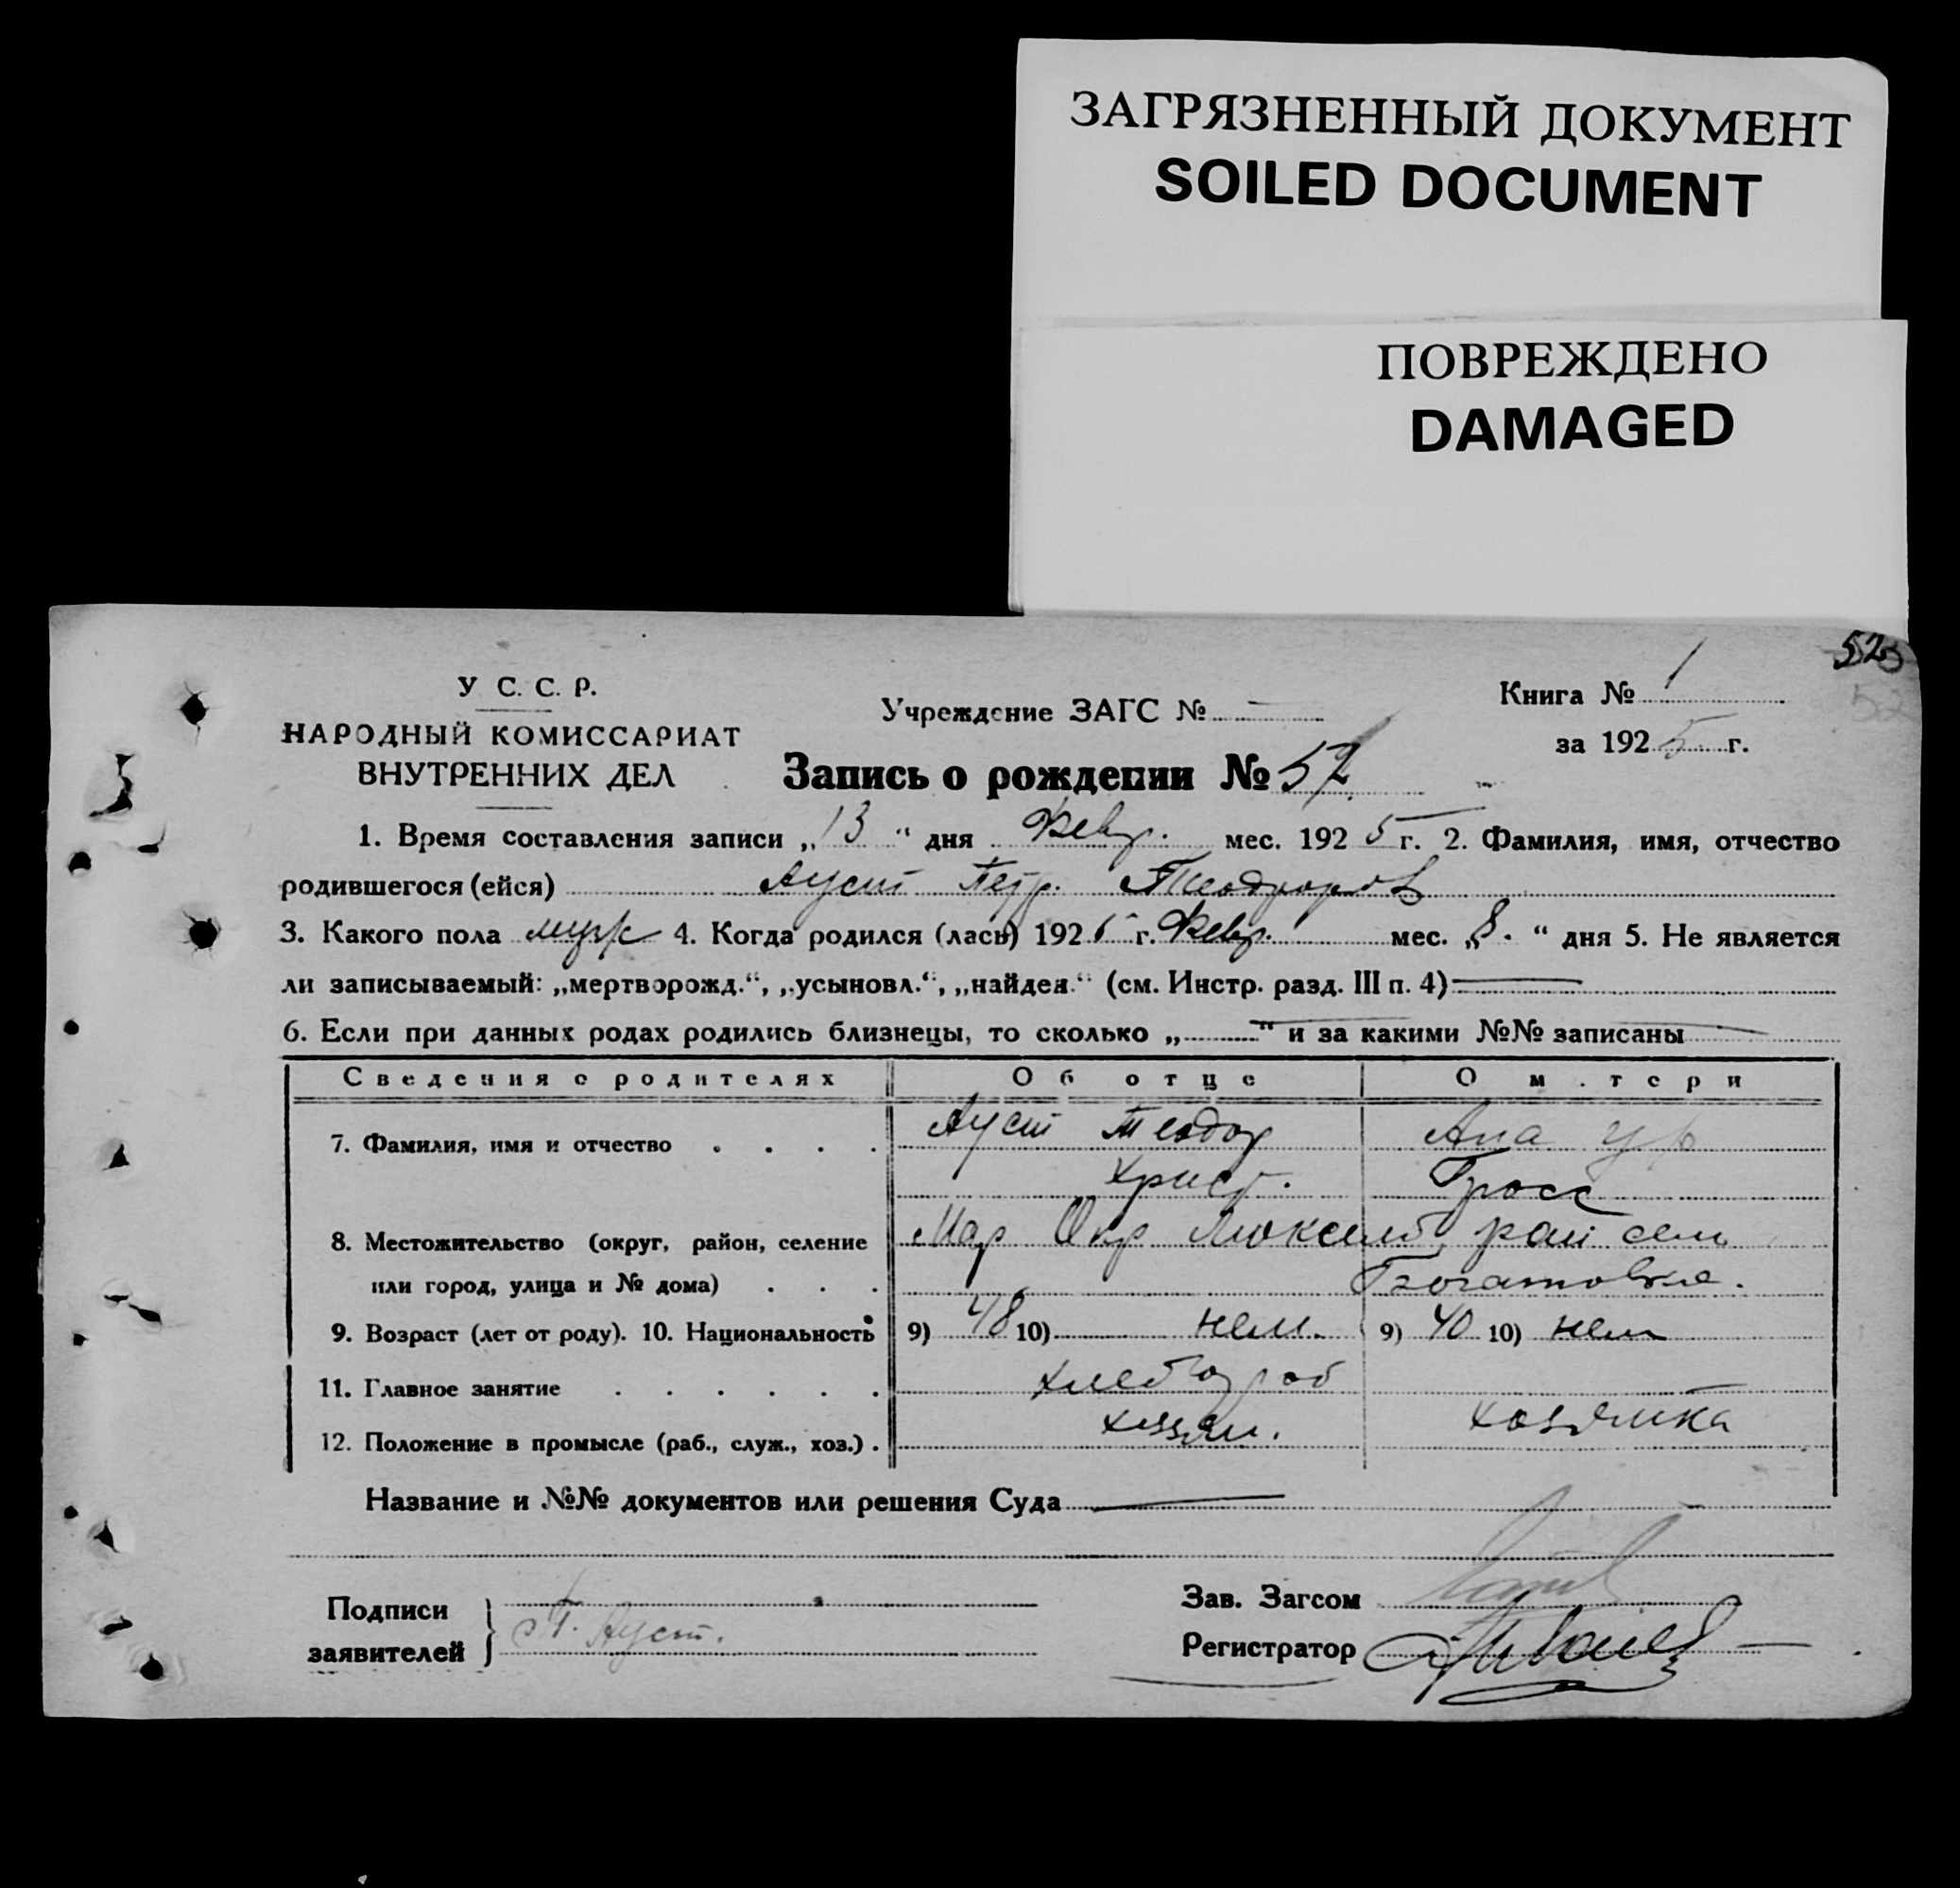 ЗАГРЯЗНЕННЫЙ ДОКУМЕНТ
SOILED DOCUMENT
ПОВРЕЖДЕНО
DAMAGED
52
У С. С. Р.
НАРОДНЫЙ КОМИССАРИАТ
ВНУТРЕННИХ ДЕЛ
Учреждение ЗАГС №
Книга № 1
за 1925 г.
Запись о рождении № 52
1. Время составления записи „13“ дня Февр. мес. 1925 г. 2. Фамилия, имя, отчество
родившегося (ейся) Ауст Петр. Теодоров
3. Какого пола муж 4. Когда родился (лась) 1925 г. Февр. мес. „8.“ дня 5. Не является
ли записываемый: „мертворожд.“, „усыновл.“, „найден.“ (см. Инстр. разд. III п. 4)
6. Если при данных родах родились близнецы, то сколько „ “ и за какими №№ записаны
Сведения о родителях Об отце О м.тери
7. Фамилия, имя и отчество . . . . Ауст Теодор Ана ур
Христ. Гросс
8. Местожительство (округ, район, селение Мар Окр Люксемб. рай село
или город, улица и № дома) . . . Богатовка.
9. Возраст (лет от роду). 10. Национальность 9) 48 10) нем. 9) 40 10) нем
11. Главное занятие . . . . . . хлебороб
12. Положение в промысле (раб., служ., хоз.) . хозяин. хозяйка
Название и №№ документов или решения Суда
Подписи
заявителей } Т. Ауст.
Зав. Загсом
Регистратор